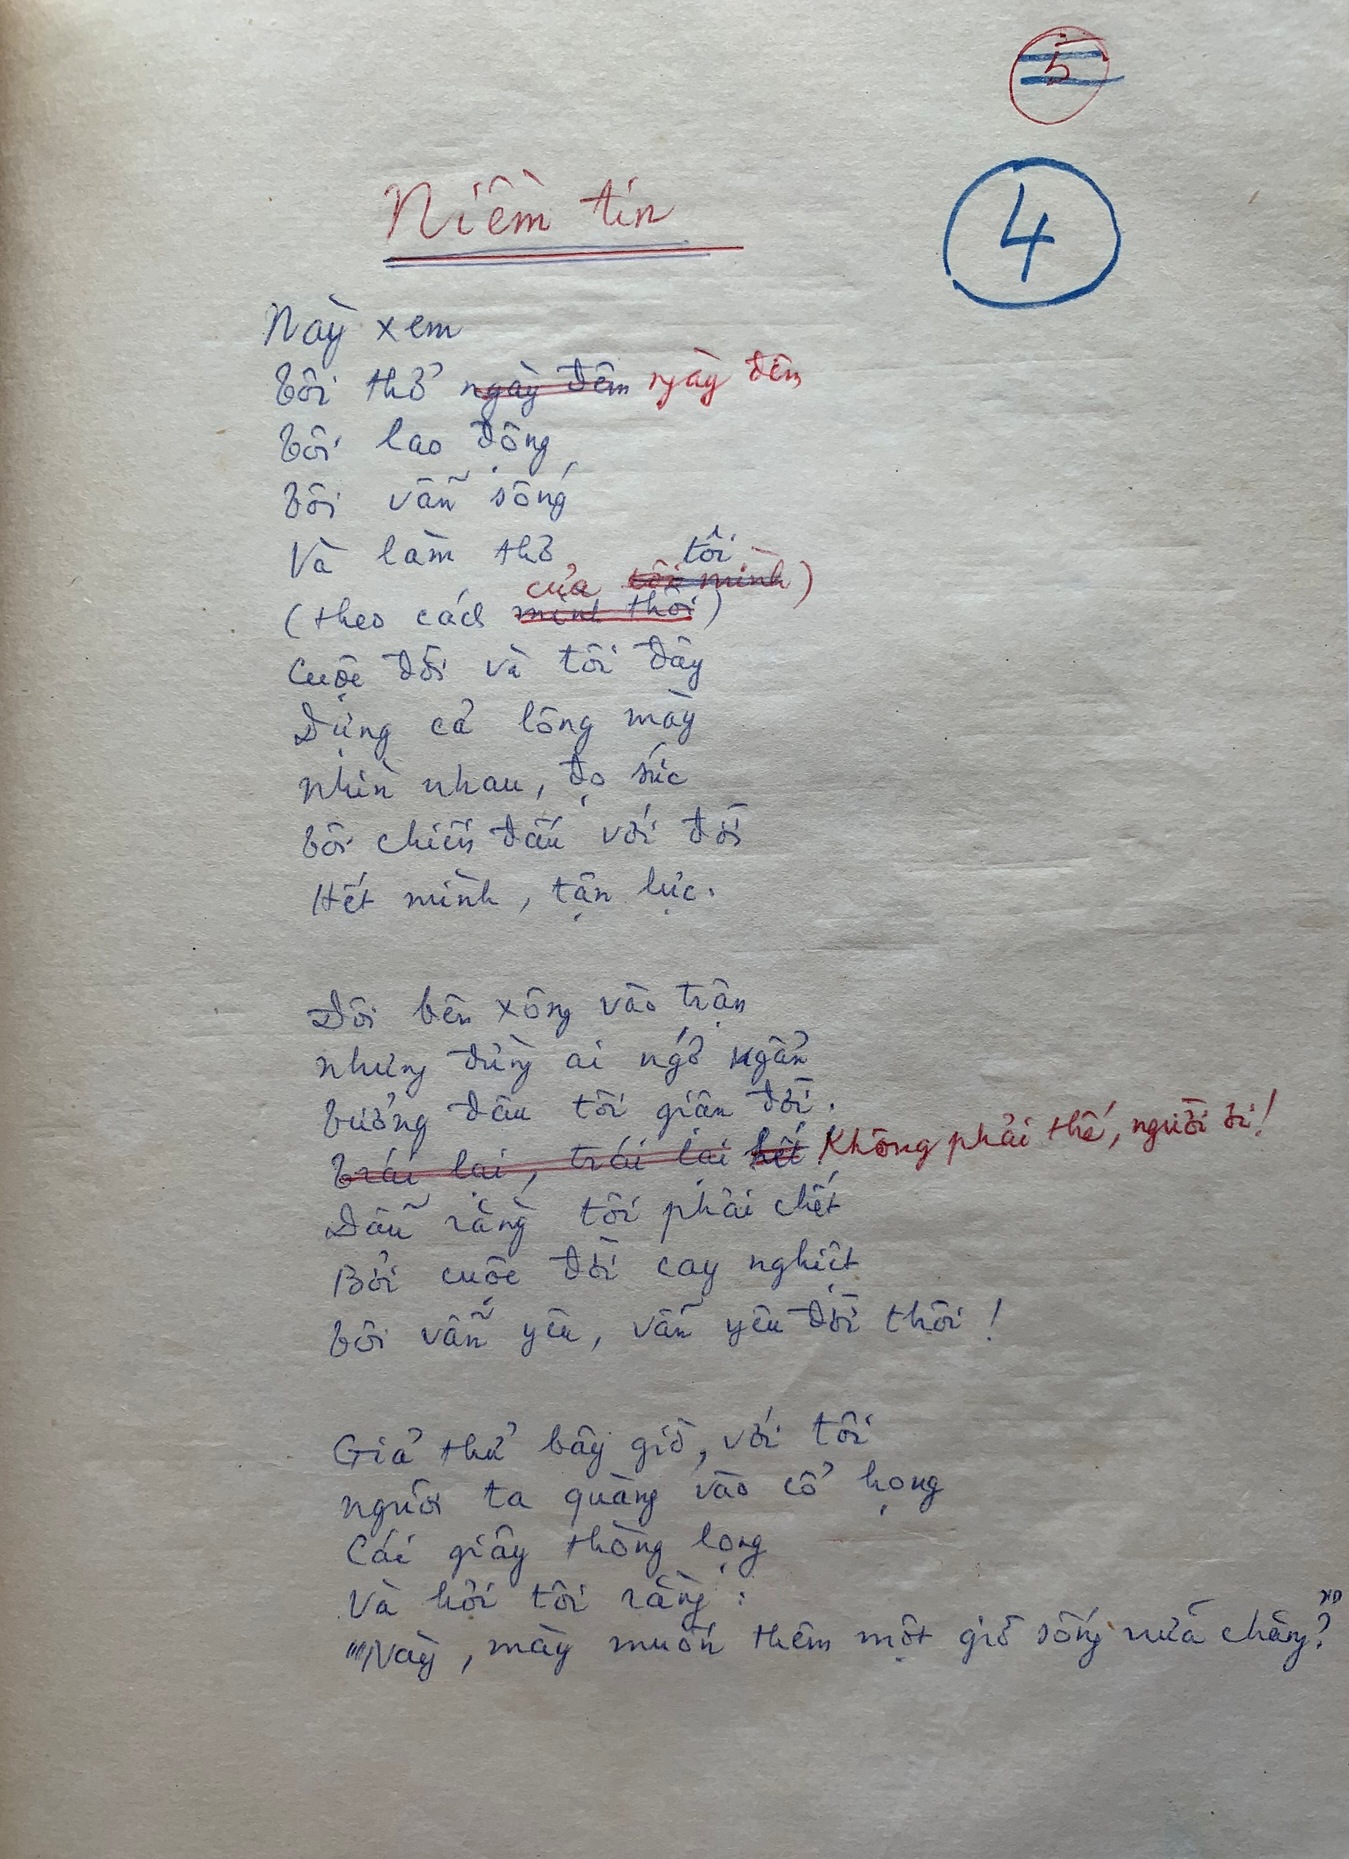 5
4
Niềm tin
Này xem
Tôi thở ngày đêm ngày đêm
Tôi lao động
Tôi vẫn sống
Và làm thơ
tôi
của tôi mình)
(theo cách mình thôi)
Cuộc đời và tôi đây
Dựng cả lông mày
Nhìn nhau, đọ sức
Tôi chiến đấu với đời
Hết mình, tận lực.
Đôi bên xông vào trận
Nhưng đừng ai ngớ ngẩn
Tưởng đâu tôi giận đời.
Trái lại, trái lại hết! Không phải thế, người ơi!
Dẫu rằng tôi phải chết
Bởi cuộc đời cay nghiệt
Tôi vẫn yêu, vẫn yêu đời thôi!
Giả thử bây giờ, với tôi
Người ta quàng vào cổ họng
Cái giây thòng lọng
Và hỏi tôi rằng:
"Này, mày muốn thêm một giờ sống nữa chăng?"